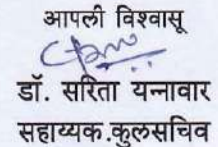 आपली विश्वासू
डॉ. सरिता यन्नावार
सहाय्यक.कुलसचिव